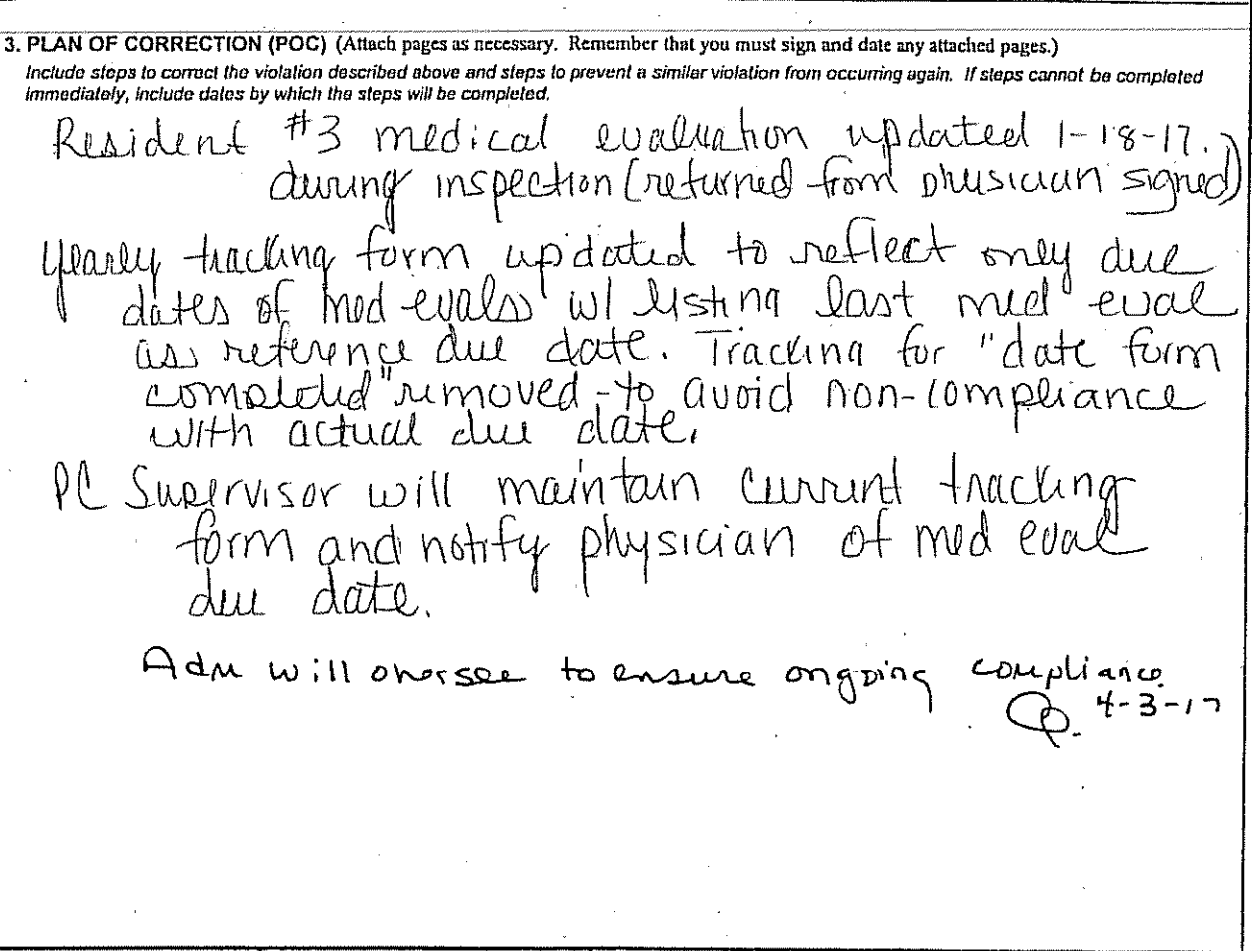 3. PLAN OF CORRECTION (POC) (Attach pages as necessary. Remember that you must sign and date any attached pages.)
Include steps to correct the violation described above and steps to prevent a similar violation from occurring again. If steps cannot be completed
immediately, include dates by which the steps will be completed.
Resident #3 medical evaluation updated 1-18-17.
during inspection (returned from physician signed)
Yearly tracking form updated to reflect only due
dates of med evals w/ listing last med eval
as reference due date. Tracking for "date form
completed" removed - to avoid non-compliance
with actual due date.
PC Supervisor will maintain current tracking
form and notify physician of med eval
due date.
Adm will oversee to ensure ongoing compliance.
4-3-17